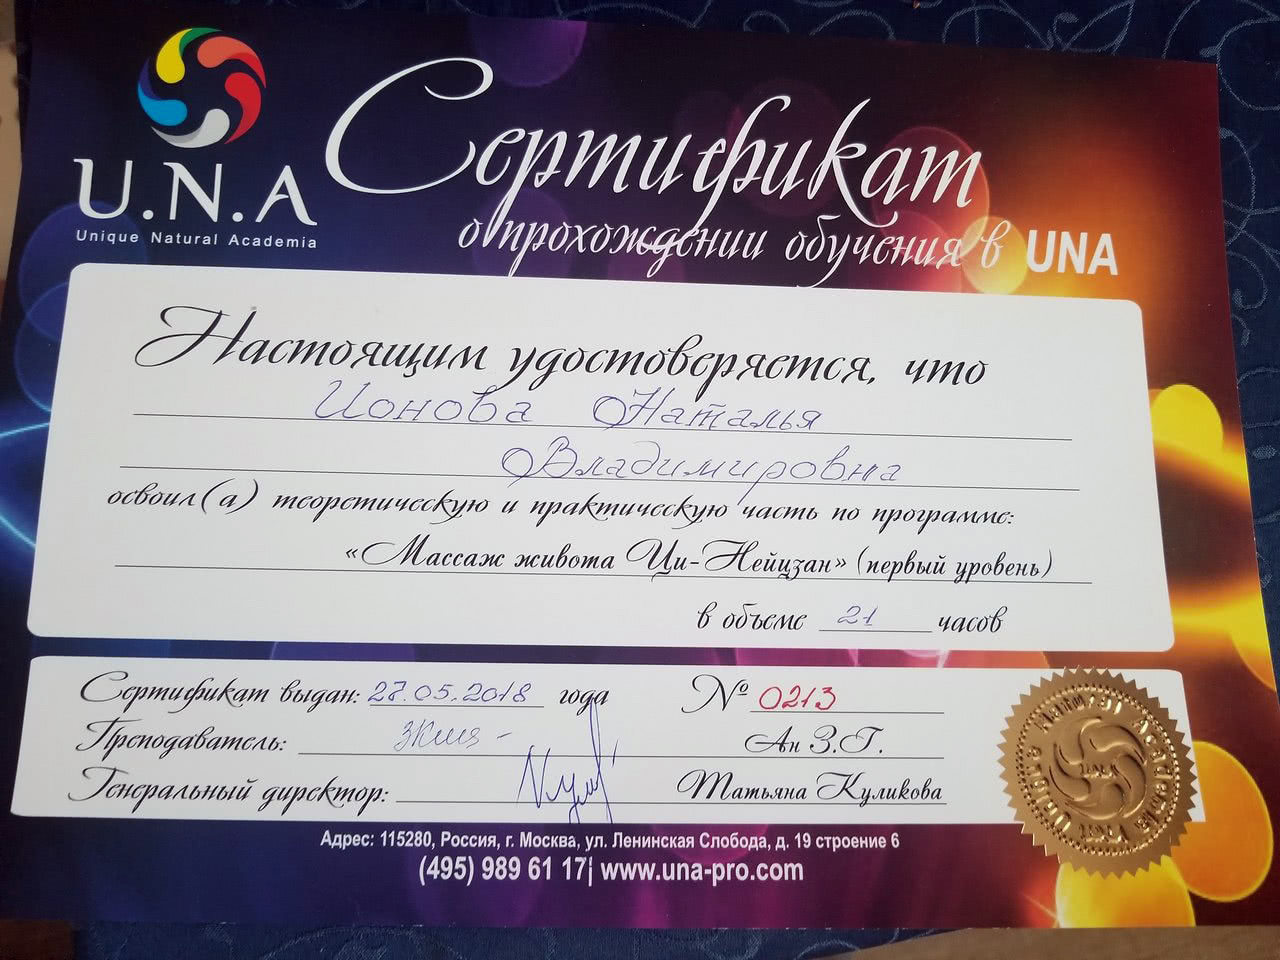 U.N.A
Unique Natural Academia
Сертификат
о прохождении обучения в UNA
Настоящим удостоверяется, что
Ионова Наталья
Владимировна
освоил(а) теоретическую и практическую часть по программе:
«Массаж живота Ци-Нейцзан» (первый уровень)
в объеме 21 часов
Сертификат выдан: 27.05.2018 года № 0213
Преподаватель: Ан З.Г.
Генеральный директор: Татьяна Куликова
Адрес: 115280, Россия, г. Москва, ул. Ленинская Слобода, д. 19 строение 6
(495) 989 61 17| www.una-pro.com
Unique Natural Academia
UNA